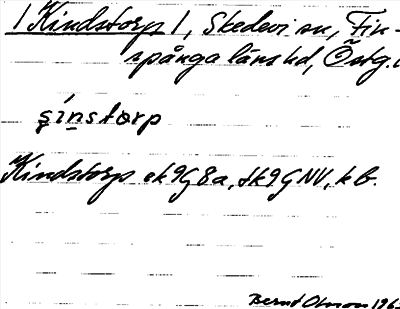 1 Kindstorp 1, Skedevi sn, Fin-
spånga läns hd, Östg.
şínstorp
Kindstorp ek 9G8a, sk 9GNV, kb.
Bernt Olsson 196